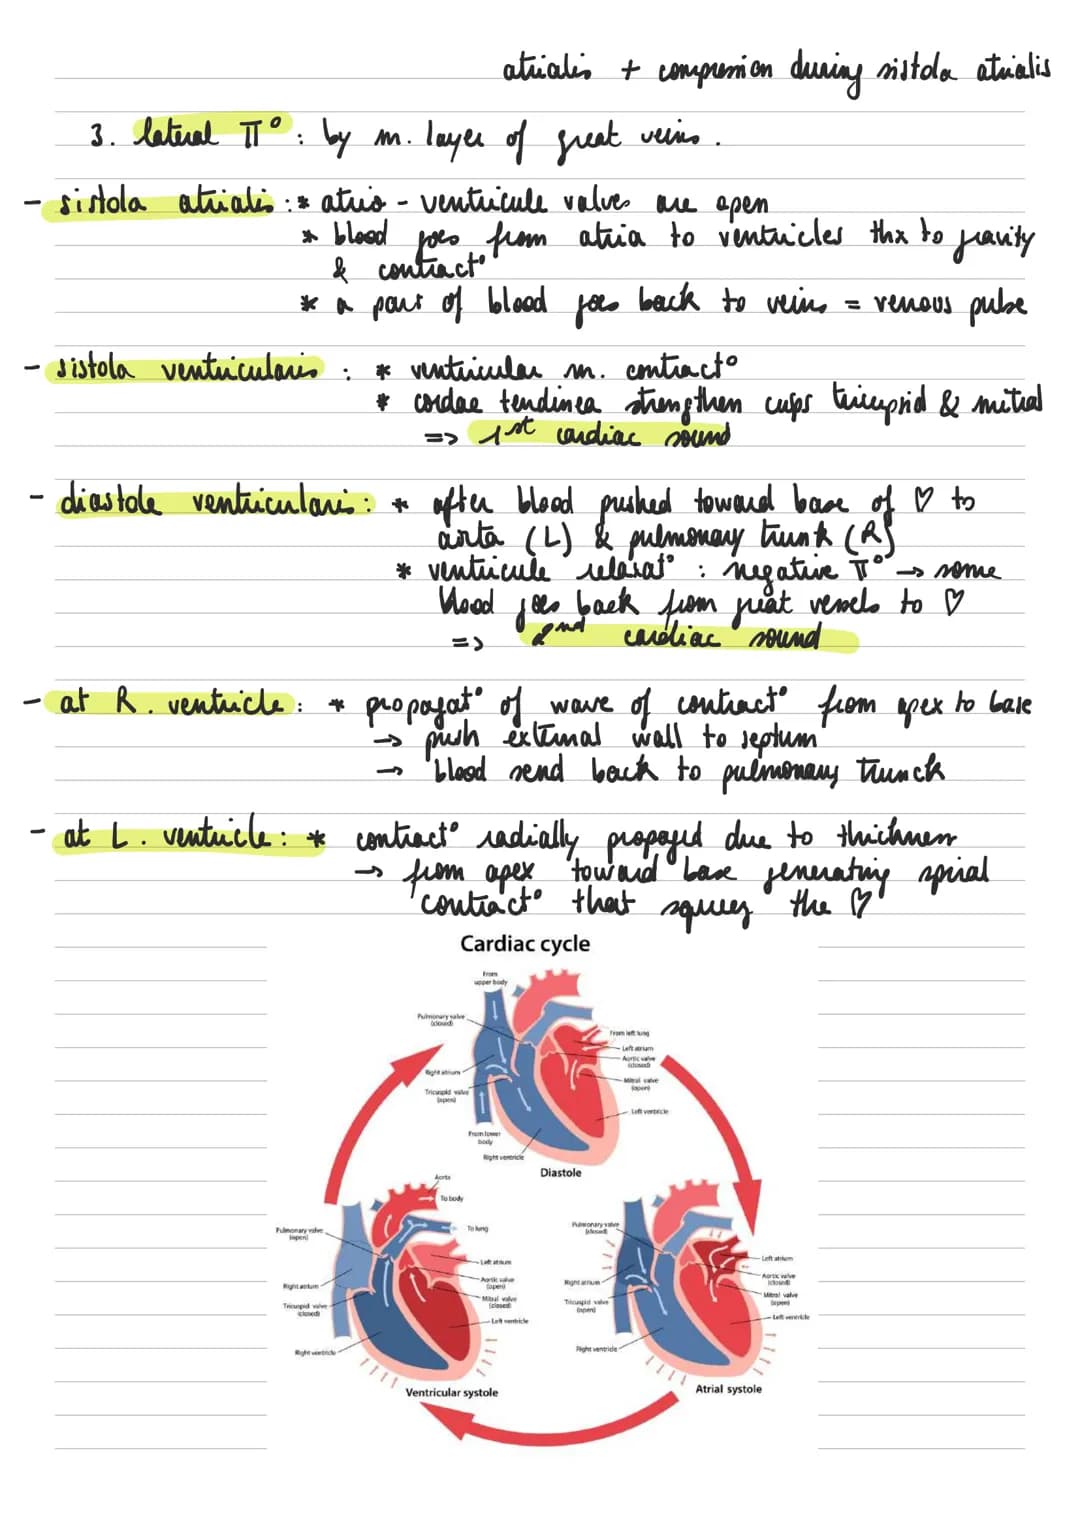 atrialis + compression during sistola atrialis
3. lateral π° : by m. layer of great veins.
- sistola atrialis : * atrio - ventricule valves are open
* blood goes from atria to ventricles thx to gravity
& contract°
* a part of blood goes back to veins = venous pulse
- sistola ventricularis : * ventricular m. contract°
* cordae tendinea strengthen cups tricupsid & mitral
=> 1st cardiac sound
- diastole ventricularis : * after blood pushed toward base of ♡ to
aorta (L) & pulmonary trunk (R)
* ventricule relaxat° : negative π° → some
blood goes back from great vessels to ♡
=> 2nd cardiac sound
- at R. ventricle : * propagat° of wave of contract° from apex to base
→ push external wall to septum
→ blood send back to pulmonary trunck
- at L. ventricle : * contract° radially propaged due to thickness
→ from apex toward base generating spiral
contract° that squeez the ♡
Cardiac cycle
From
upper body
Pulmonary valve
(closed)
From left lung
Left atrium
Aortic valve
(closed)
Right atrium
Mitral valve
(open)
Tricuspid valve
(open)
Left ventricle
From lower
body
Right ventricle
Diastole
Aorta
To body
Pulmonary valve
(open)
To lung
Left atrium
Aortic valve
(open)
Right atrium
Mitral valve
(closed)
Tricuspid valve
(closed)
Left ventricle
Right ventricle
Ventricular systole
Pulmonary valve
(closed)
Left atrium
Aortic valve
(closed)
Right atrium
Mitral valve
(open)
Tricuspid valve
(open)
Left ventricle
Right ventricle
Atrial systole